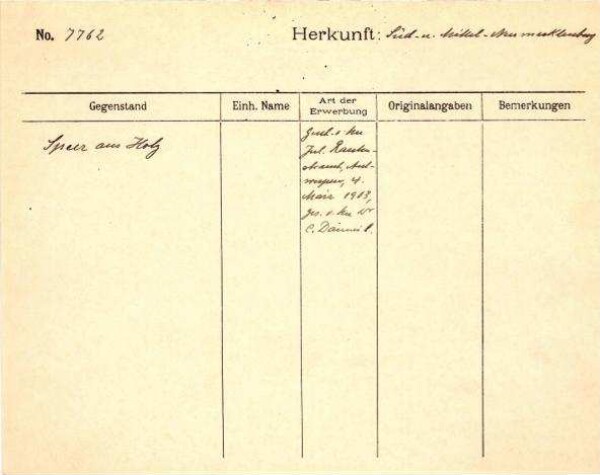 No. 7762 Herkunft: Süd- u. Mittel-Neumecklenburg
Gegenstand Einh. Name Art der Erwerbung Originalangaben Bemerkungen
Speer aus Holz
Gesch. v. Hn
Jul.
Antwerpen, 4.
März 1913,
ges. v. Hn Dr
C. Däumi